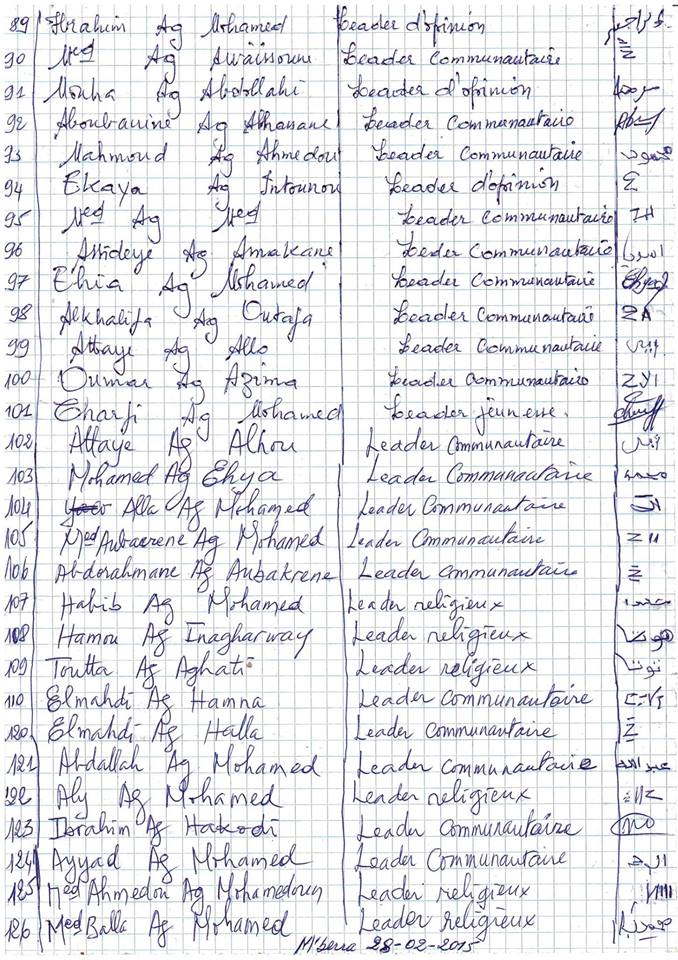 89 Ibrahim Ag Mohamed Leader d'opinion
90 Med Ag Awaïssoune Leader Communautaire
91 Mouha Ag Abdollahi Leader d'opinion
92 Aboubacrine Ag Alhanane Leader Communautaire
93 Mahmoud Ag Ahmedou Leader Communautaire
94 Ekaya Ag Intounou Leader d'opinion
95 Med Ag Med Leader communautaire
96 Assideye Ag Amakane Leader Communautaire
97 Ehia Ag Mohamed Leader Communautaire
98 Alkhalifa Ag Outafa Leader Communautaire
99 Attaye Ag Allo Leader Communautaire
100 Oumar Ag Azima Leader Communautaire
101 Echarfi Ag Mohamed Leader jeunesse.
102 Attaye Ag Alhou Leader Communautaire
103 Mohamed Ag Ehya Leader Communautaire
104 Alla Ag Mohamed Leader Communautaire
105 Med Aubacrene Ag Mohamed Leader Communautaire
106 Abdorahmane Ag Aubakrene Leader Communautaire
107 Habib Ag Mohamed Leader religieux
108 Hamou Ag Inagharway Leader religieux
109 Toutta Ag Aghati Leader religieux
110 Elmahdi Ag Hamna Leader Communautaire
120 Elmahdi Ag Halla Leader Communautaire
121 Abdallah Ag Mohamed Leader Communautaire عبد الله
122 Aly Ag Mohamed Leader religieux
123 Ibrahim Ag Hakodi Leader Communautaire
124 Ayyad Ag Mohamed Leader Communautaire
125 Med Ahmedou Ag Mohamedoun Leader religieux
126 Med Balla Ag Mohamed Leader religieux
M'bera 28-02-2015